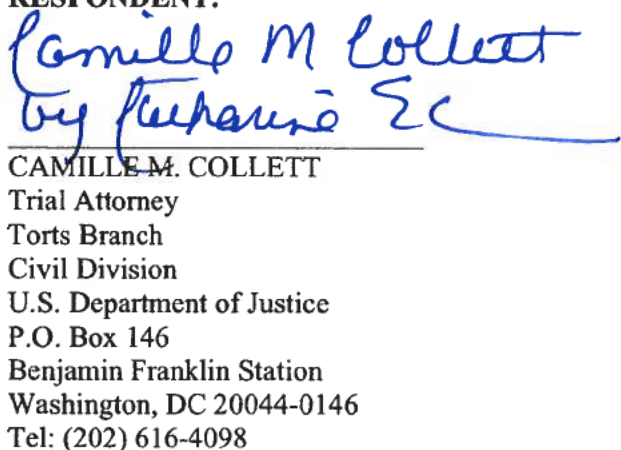 RESPONDENT:
Camille M Collett
by Katharine
CAMILLE M. COLLETT
Trial Attorney
Torts Branch
Civil Division
U.S. Department of Justice
P.O. Box 146
Benjamin Franklin Station
Washington, DC 20044-0146
Tel: (202) 616-4098